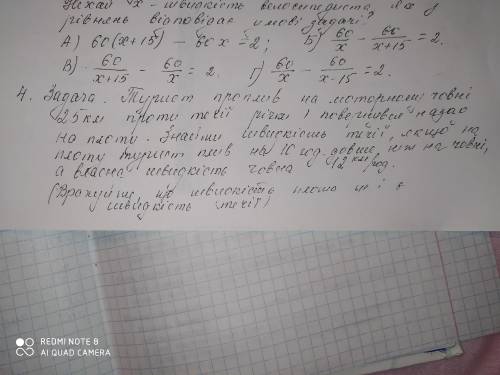 Нехай x - швидкість велосипедиста. Яке з
рівнянь відповідає умові задачі?
А) 60(x+15) - 60x = 2; Б) 60/x - 60/(x+15) = 2.
В) 60/(x+15) - 60/x = 2. Г) 60/x - 60/(x-15) = 2.
4. Задача. Турист проплив на моторному човні
25 км проти течії річки і повернувся назад
на плоту. Знайти швидкість течії, якщо на
плоту турист плив на 10 год довше, ніж на човні,
а власна швидкість човна 12 км/год.
(Врахуйте, що швидкість плота це і є
швидкість течії)
REDMI NOTE 8
AI QUAD CAMERA